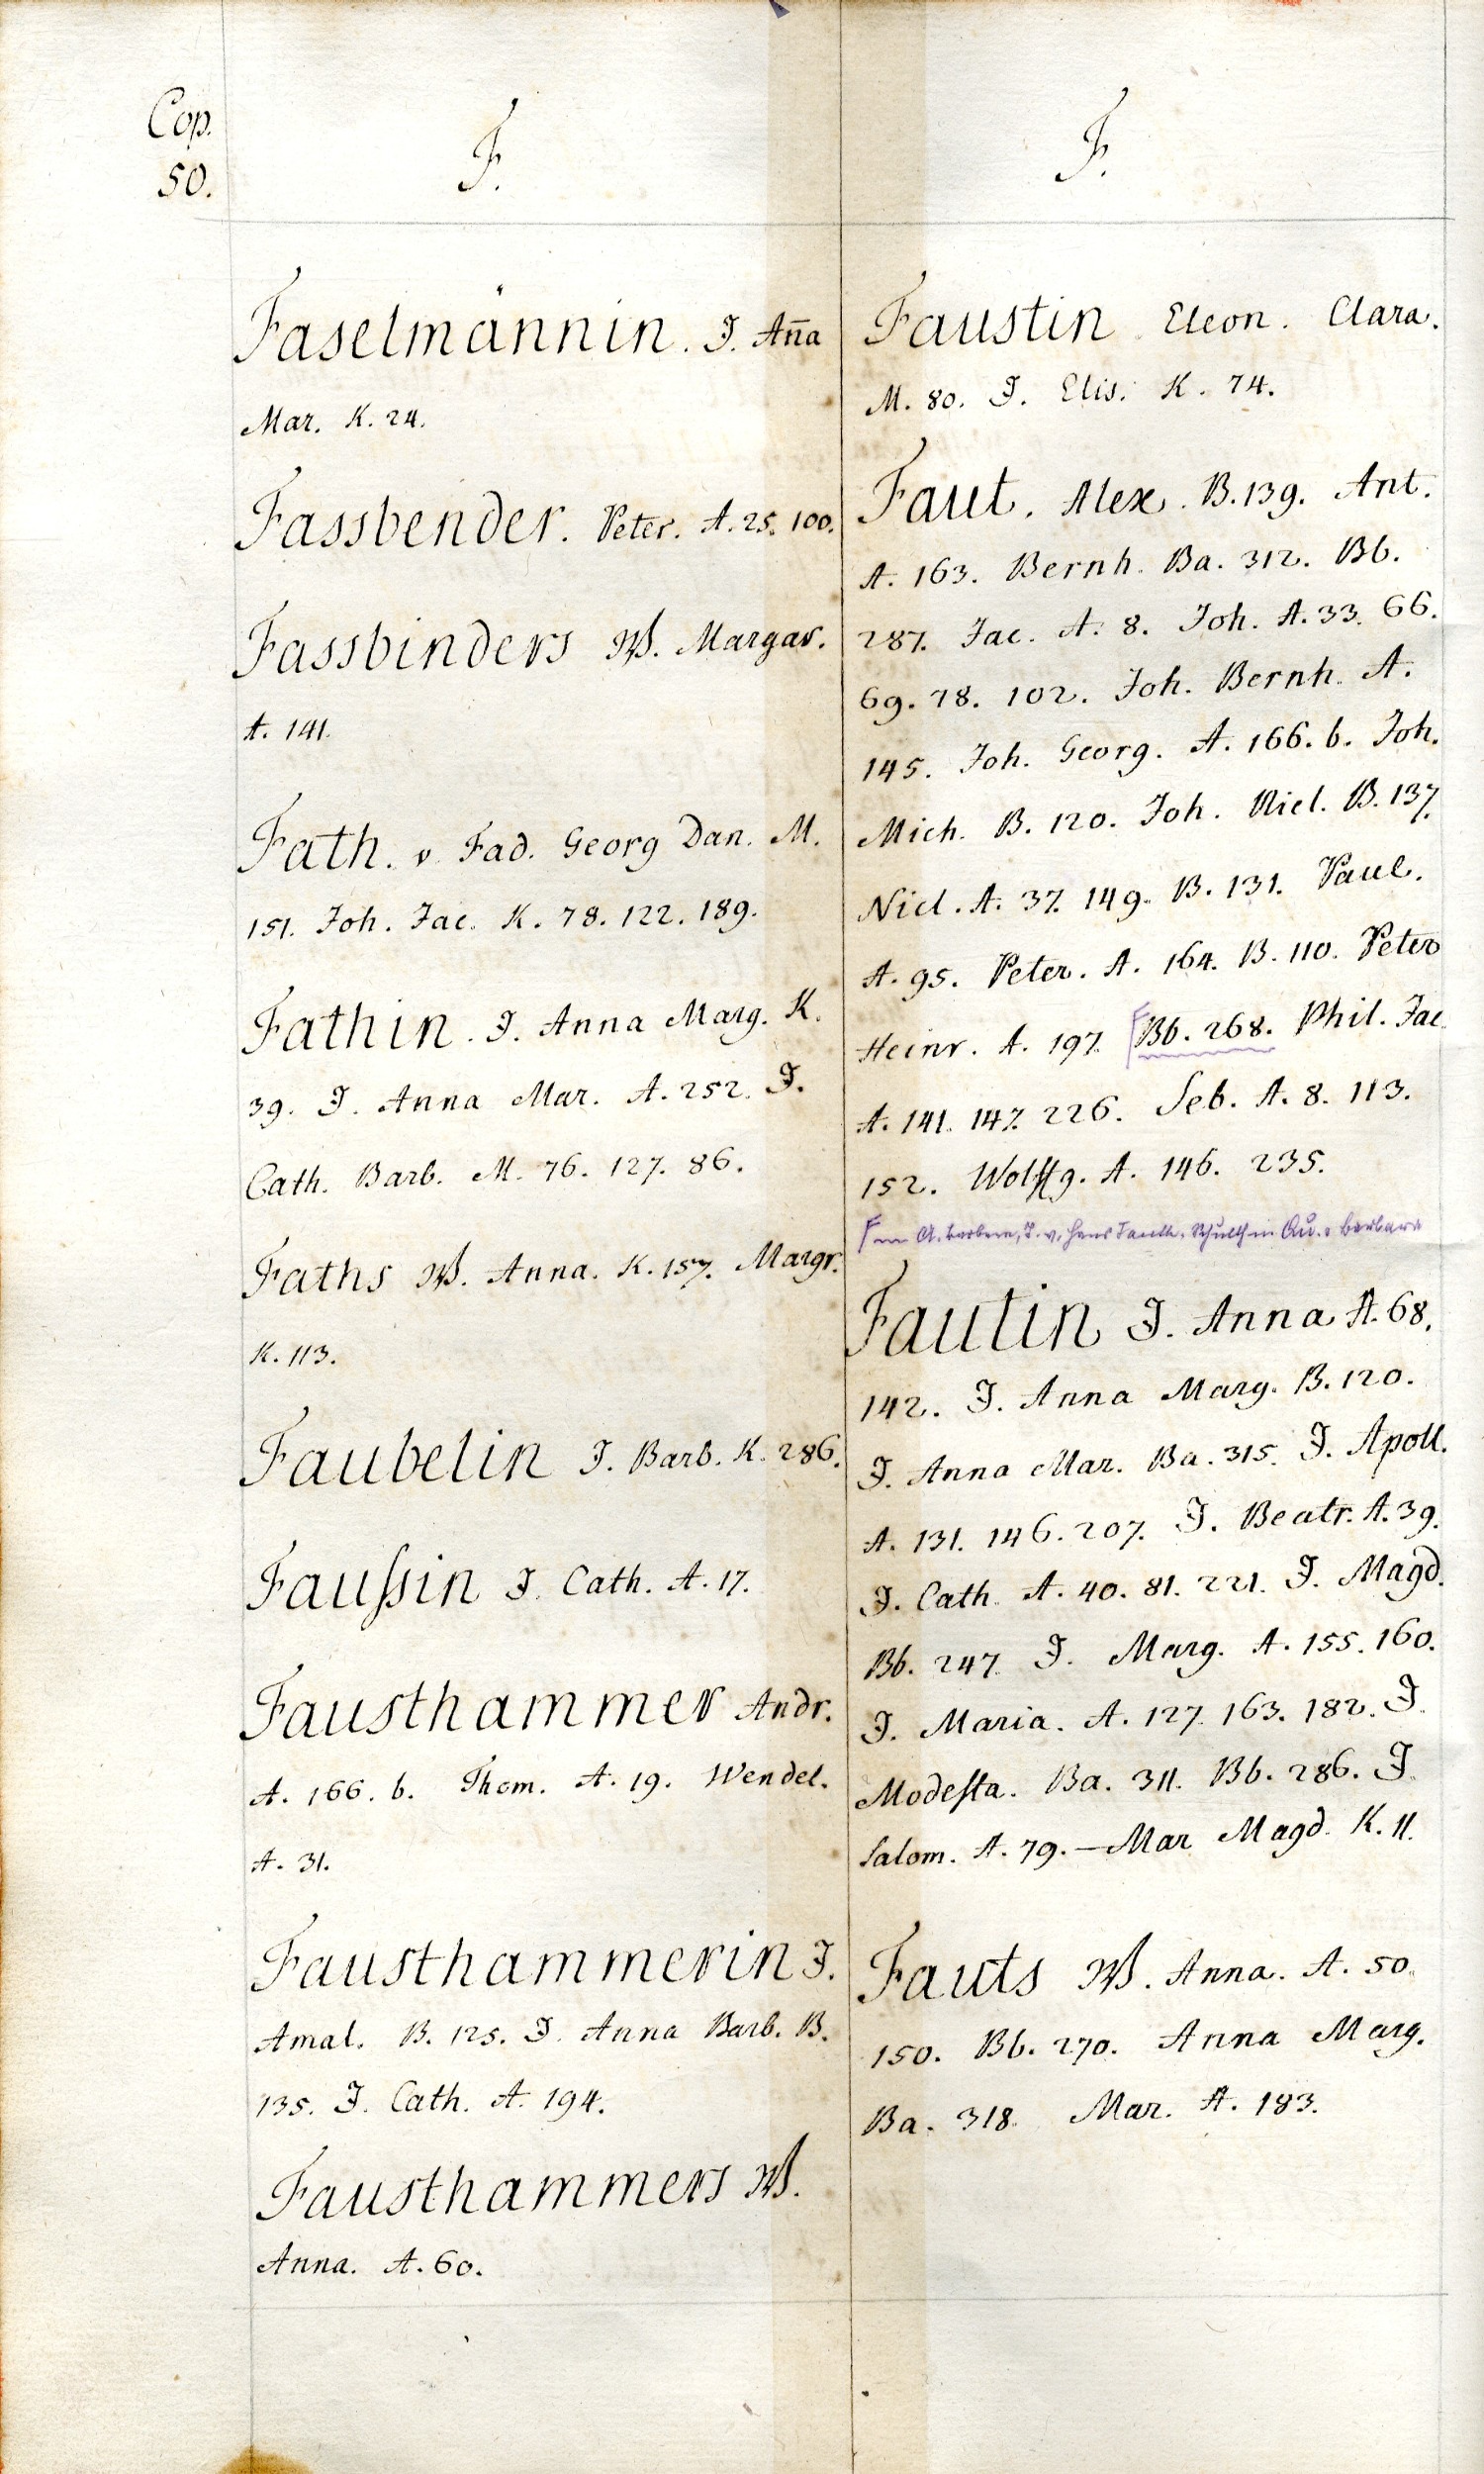 Cop.
50.
F.
Faselmännin. J. Aña
Mar. K. 24.
Fassbender. Peter. A. 25. 100.
Fassbinders W. Margar.
A. 141.
Fath. v. Fad. Georg Dan. M.
151. Joh. Jac. K. 78. 122. 189.
Fathin. J. Anna Marg. K.
39. J. Anna Mar. A. 252. J.
Cath. Barb. M. 76. 127. 86.
Faths W. Anna. K. 157. Margr.
K. 113.
Faubelin J. Barb. K. 286.
Fauſsin J. Cath. A. 17.
Fausthammer Andr.
A. 166. b. Thom. A. 19. Wendel.
A. 31.
Fausthammerin J.
Amal. B. 125. J. Anna Barb. B.
135. J. Cath. A. 194.
Fausthammers W.
Anna. A. 60.
F.
Faustin Eleon. Clara.
M. 80. J. Elis. K. 74.
Faut. Alex. B. 139. Ant.
A. 163. Bernh. Ba. 312. Bb.
287. Jac. A. 8. Joh. A. 33. 66.
69. 78. 102. Joh. Bernh. A.
145. Joh. Georg. A. 166. b. Joh.
Mich. B. 120. Joh. Nicl. B. 137.
Nicl. A. 37. 149. B. 131. Paul.
A. 95. Peter. A. 164. B. 110. Peter
Heinr. A. 197. Bb. 268. Phil. Jac.
A. 141. 147. 226. Seb. A. 8. 113.
152. Wolffg. A. 146. 235.
A. Barbara, T. v. Hans Fauth, Schulth in Qu. Barbara
Fautin J. Anna A. 68.
142. J. Anna Marg. B. 120.
J. Anna Mar. Ba. 315. J. Apoll.
A. 131. 146. 207. J. Beatr. A. 39.
J. Cath. A. 40. 81. 221. J. Magd.
Bb. 247. J. Marg. A. 155. 160.
J. Maria. A. 127. 163. 182. J.
Modeſta. Ba. 311. Bb. 286. J.
Salom. A. 79. — Mar Magd. K. 11.
Fauts W. Anna. A. 50.
150. Bb. 270. Anna Marg.
Ba. 318. Mar. A. 183.